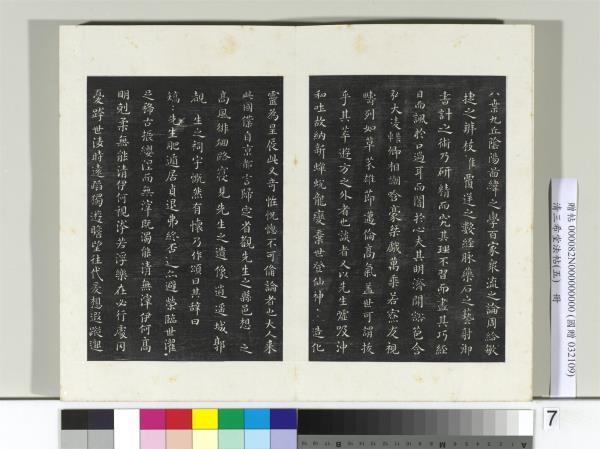 八索九丘陰陽圖緯之學百家衆流之論周給敏
捷之辨枝離覆逆之數經脉藥石之藝射御
書計之術乃研精而究其理不習而盡其巧經
目而諷於口過耳而闇於心夫其明濟開豁苞含
弘大凌轢卿相嘲哂豪桀戲萬乘若寮友視
疇列如草芥雄節邁倫高氣盖世可謂拔
乎其萃遊方之外者也談者又以先生噓吸沖
和吐故納新蟬蛻龍變棄世登仙神造化
靈為星辰此又奇怪恍惚不可備論者也大人来
此國僕自京都言歸定省覩先生之縣邑想之
高風徘徊路寢見先生之遺像逍遥城郭
覩先生之祠宇慨然有懷乃作頌曰其辞曰
矯先生肥遁居貞退弗終否進亦避榮臨世濯
足希古振纓涅而無滓既濁能清無滓伊何高
明剋柔無能清伊何視汙若浮樂在必行處罔
憂跨世凌時遠蹈獨遊瞻望往代爰想遐蹤邈
贈帖 000082N000000000 (國贈 032109)
清三希堂法帖(五) 冊
7